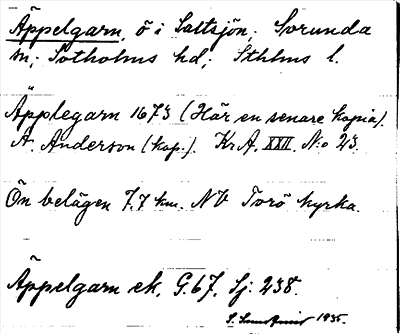 Äppelgarn, ö i Saltsjön; Sorunda
sn; Sotholms hd; Sthlms l.
Äpplegarn 1673 (Här en senare kopia).
A. Anderson (kop.). Kr.A. XXII. No 23.
Ön belägen 7,7 km. NV Torö kyrka.
Äppelgarn ek. G.67, Sj: 238.
S. 1935.